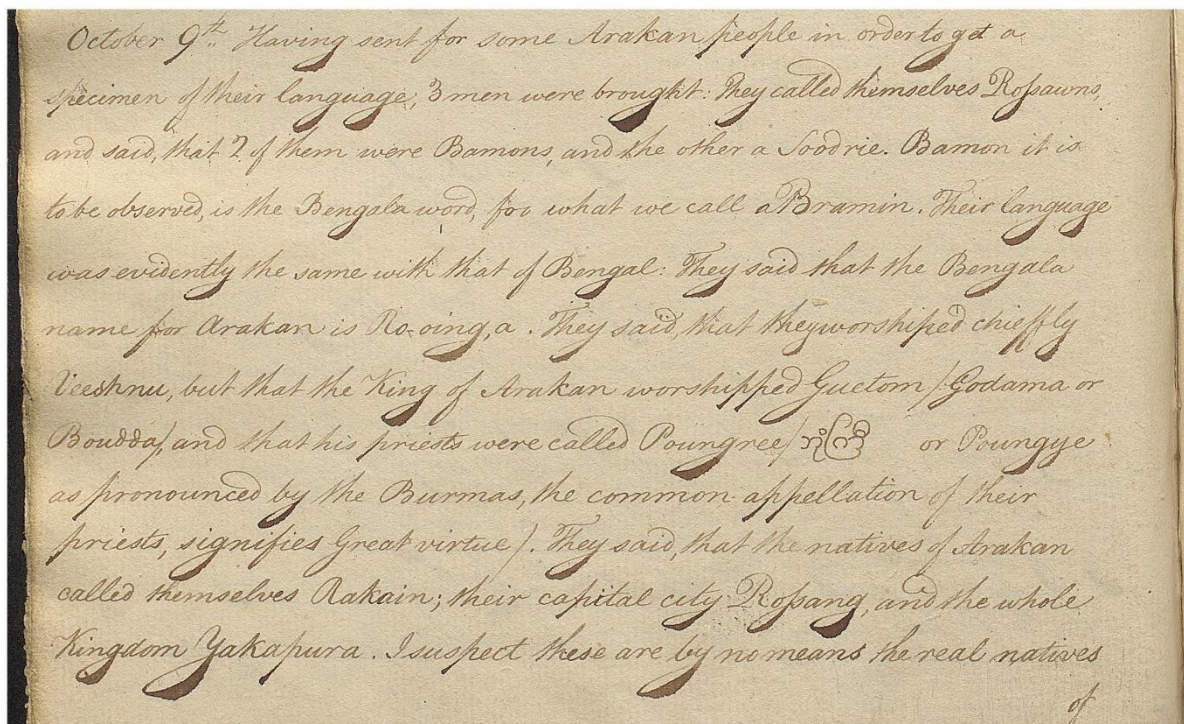 October 9th.. Having sent for some Arakan people in order to get a
specimen of their language, 3 men were brought: They called themselves Roſsawns,
and said, that 2 of them were Bamons, and the other a Soodrie. Bamon it is
to be observed, is the Bengala word, for what we call a Bramin. Their language
was evidently the same with that of Bengal: They said that the Bengala
name for Arakan is Ro-oing,a. They said, that they worshiped chieffly
Veeshnu, but that the King of Arakan worshipped Guetom /Godama or
Boudda/, and that his priests were called Poungree/ ဘုံကြီ or Poungye
as pronounced by the Burmas, the common appellation of their
priests, signifies Great virtue/. They said, that the natives of Arakan
called themselves Rakain; their capital city Roſsang, and the whole
Kingdom Yakapura. I suspect these are by no means the real natives
of